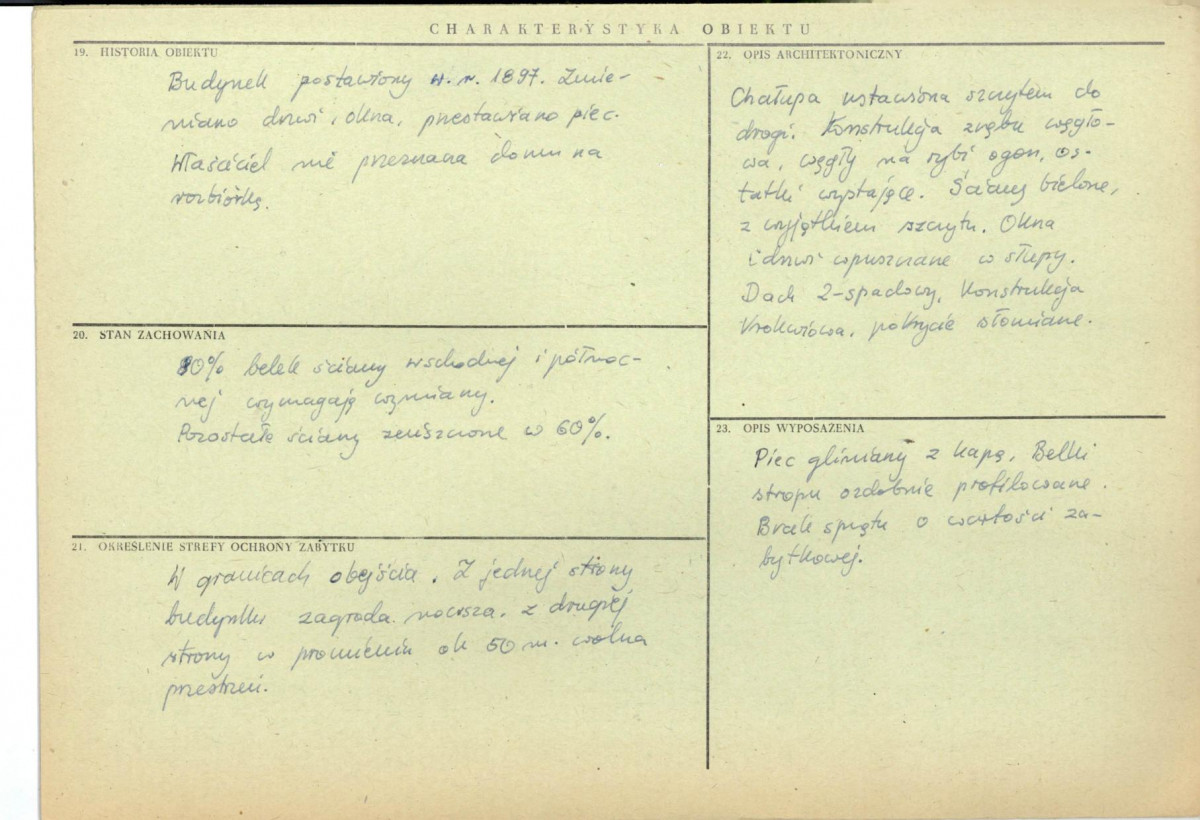 CHARAKTERYSTYKA OBIEKTU
19. HISTORIA OBIEKTU
Budynek postawiony w r. 1897. Zmie-
niano drzwi, okna, przestawiano piec.
Właściciel nie przeznacza domu na
rozbiórkę.
20. STAN ZACHOWANIA
80% belek ściany wschodniej i północ-
nej wymagają wymiany.
Pozostałe ściany zniszczone w 60%.
21. OKREŚLENIE STREFY OCHRONY ZABYTKU
W granicach obejścia. Z jednej strony
budynku zagroda nowsza, z drugiej
strony w promieniu ok 50 m. wolna
przestrzeń.
22. OPIS ARCHITEKTONICZNY
Chałupa ustawiona szczytem do
drogi. Konstrukcja zrębu węgło-
wa, węgły na rybi ogon, os-
tatki wystające. Ściany bielone,
z wyjątkiem szczytu. Okna
i drzwi wpuszczane w słupy.
Dach 2-spadowy, konstrukcja
krokwiowa, pokrycie słomiane.
23. OPIS WYPOSAŻENIA
Piec gliniany z kapą. Belki
stropu ozdobnie profilowane.
Brak sprzętu o wartości za-
bytkowej.